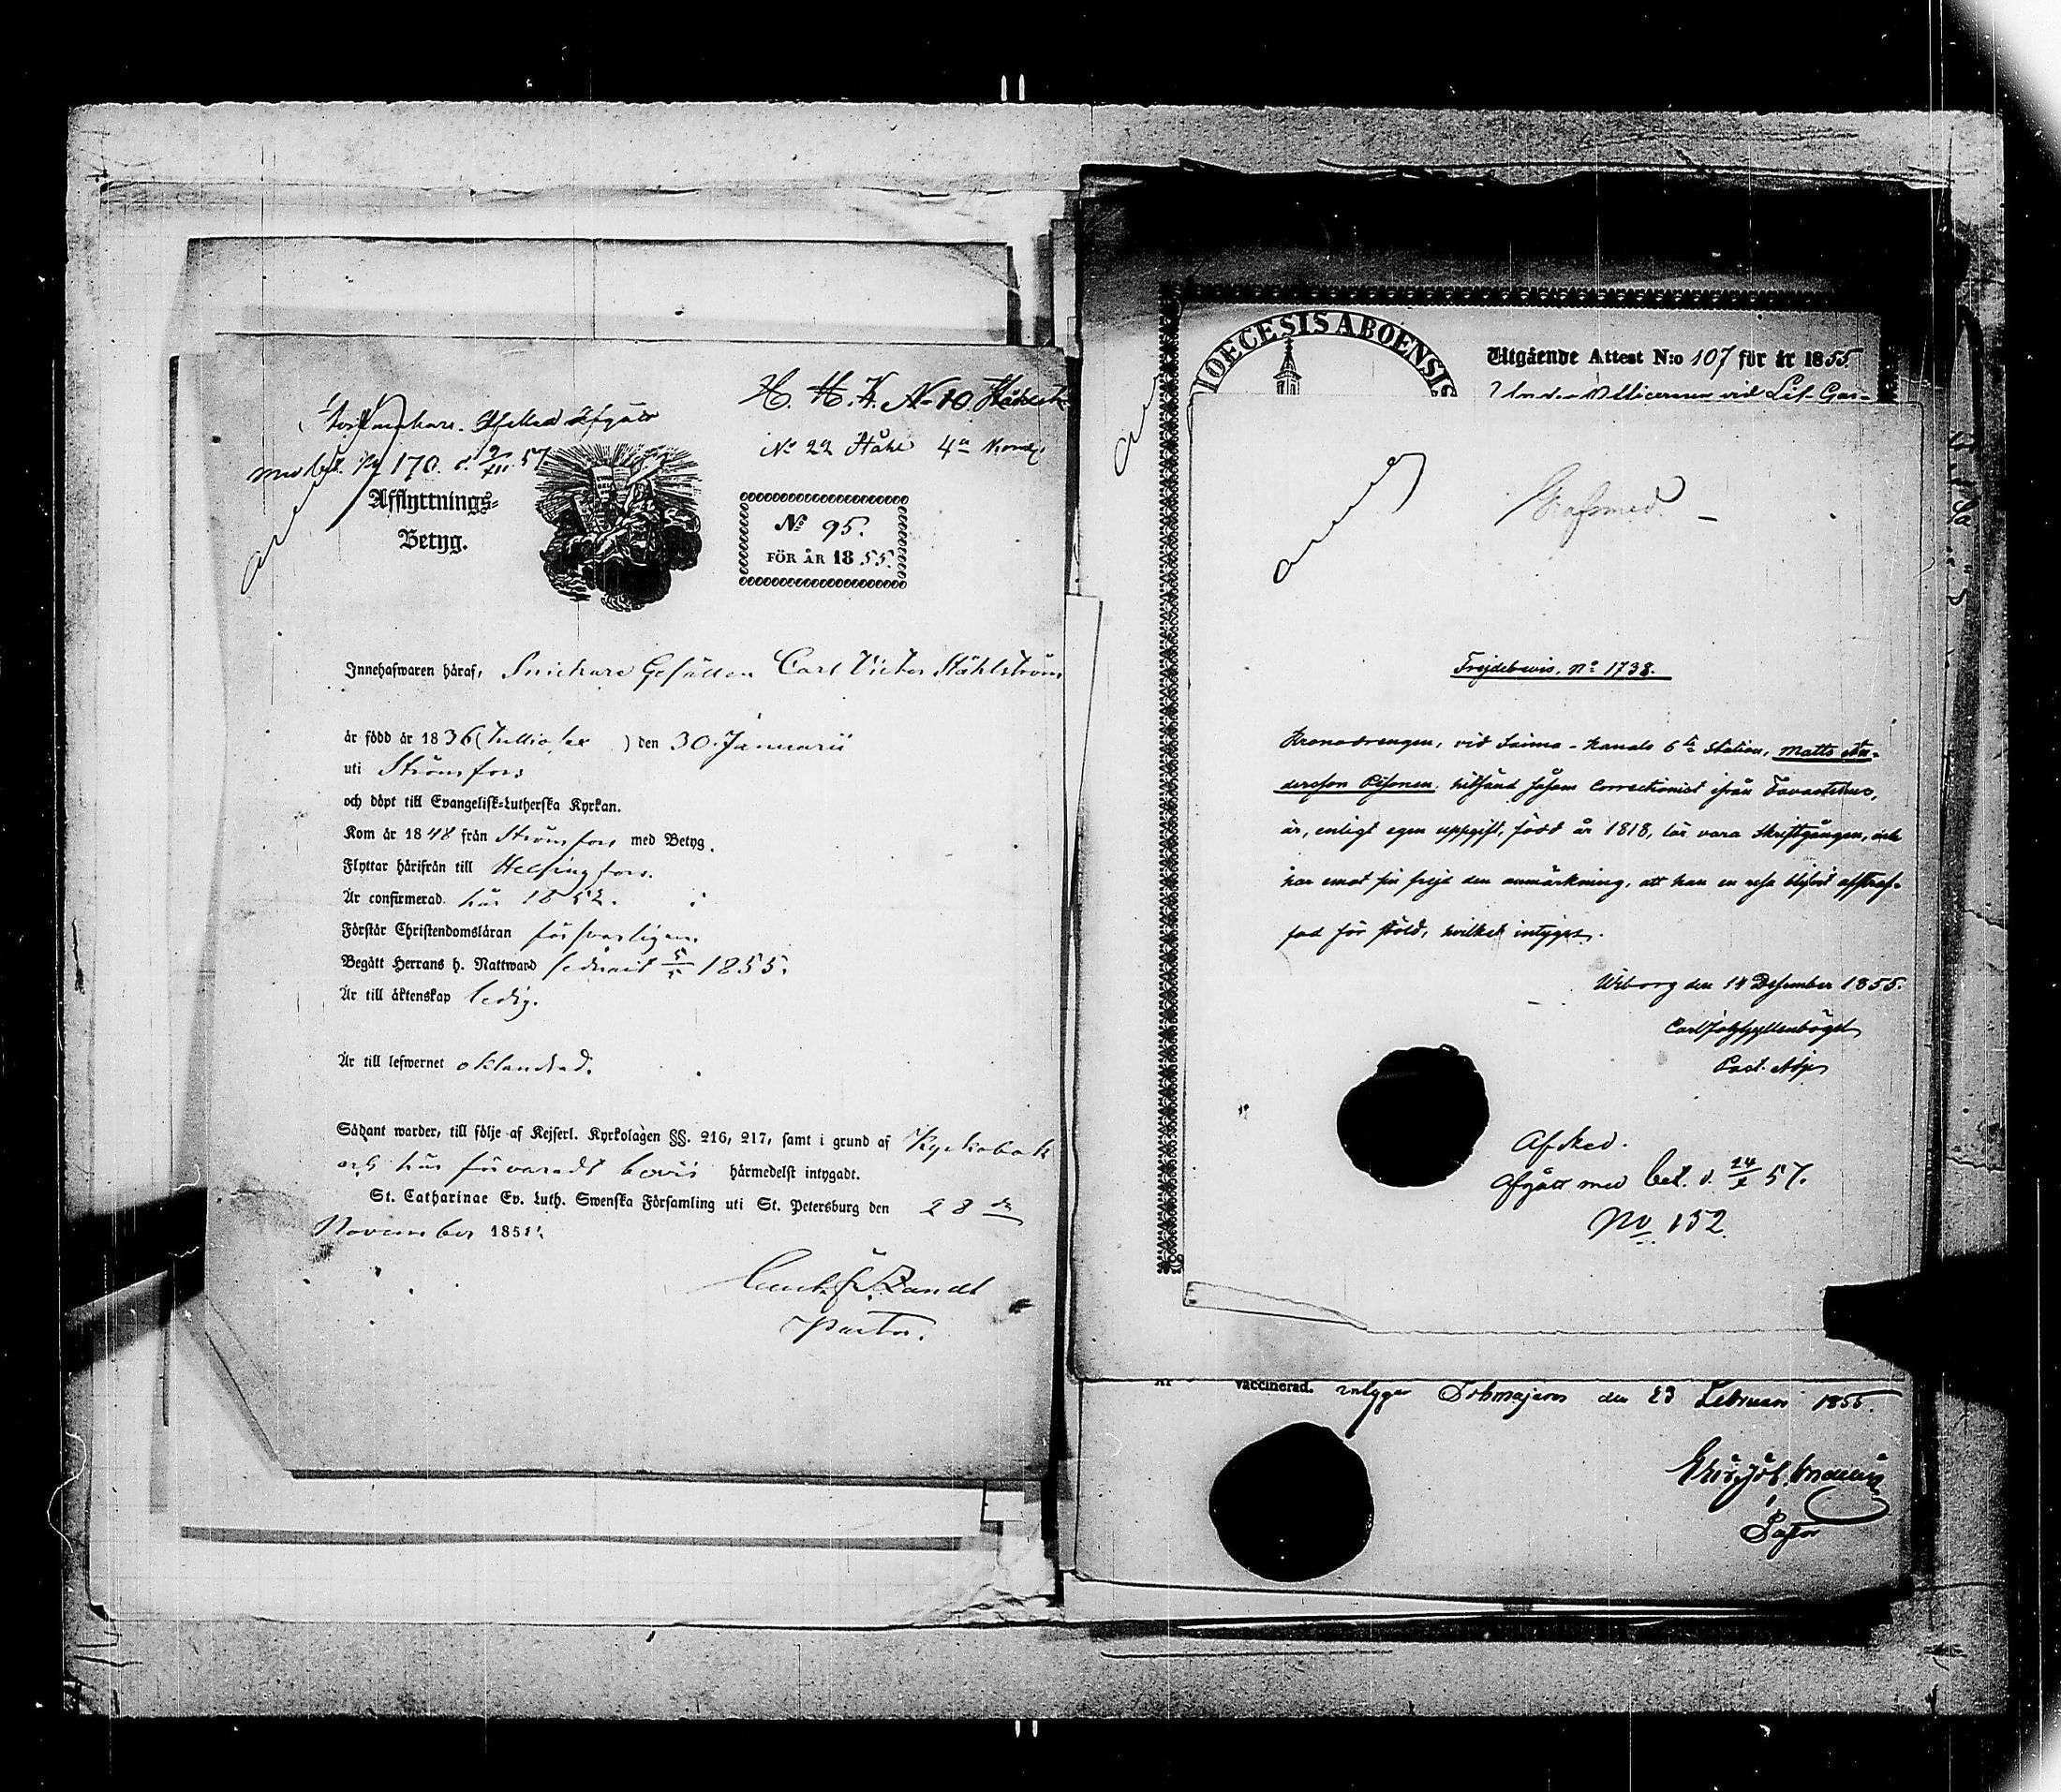 H. H. K. No 10
No 22 4a
med bet. No 170. d. 9/XII 57
Afflyttnings-
Betyg.
No 95.
FÖR ÅR 1855.
Innehafwaren häraf, Snickare Gesällen Carl Victor Ståhlström
är född år 1836 (Trettiosex) den 30. Januarii
uti Strömsfors
och döpt till Evangelisk-Lutherska Kyrkan.
Kom år 1848 från Strömsfors med Betyg.
Flyttar härifrån till Helsingfors.
Är confirmerad här 1852.
Förstår Christendomsläran försvarligen.
Begått Herrans h. Nattward sednast 5/5 1855.
Är till äktenskap ledig.
Är till lefwernet oklandrad.
Sådant warder, till följe af Kejserl. Kyrkolagen §§. 216, 217, samt i grund af Kyrkobok
och här förvaradt bevis härmedelst intygadt.
St. Catharinae Ev. Luth. Swenska Församling uti St. Petersburg den 28de
November 1855.
Pastor.
IOECESIS ABOENSIS
Utgående Attest N:o 107 för år 1855.
Under Officeren vid Lif-Gar-
Frejdebevis, No 1738.
Kronodrengen, vid Saima-Kanals 6te Station, Matts An-
dersson Pesonen, hitsänd såsom Correctionist ifrån Tavastehus,
är, enligt egen uppgift, född år 1818, lär vara Skriftgången, och
har emot sin frejd den anmärkning, att han en resa blifvit afstraf-
fad för stöld, hvilket intygas.
Wiborg den 14 December 1855.
Carl Joh Gyllenbögel
Past. Adj.
Afsked.
Afgått med bet. d. 24/X 57.
No 152.
vaccinerad. intygar Sottmajärvi den 23 Februari 1855.
Pastor